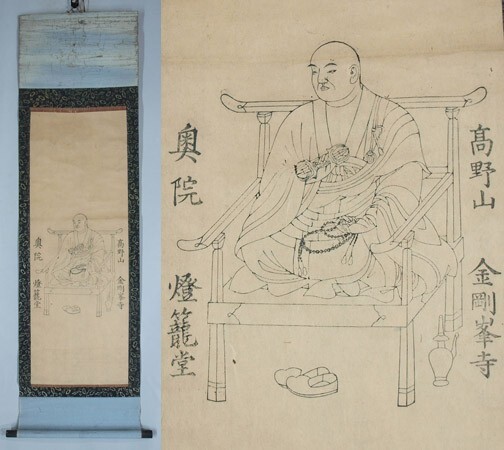 高野山 金剛峯寺
奥院 燈籠堂
高野山 金剛峯寺
奥院 燈籠堂